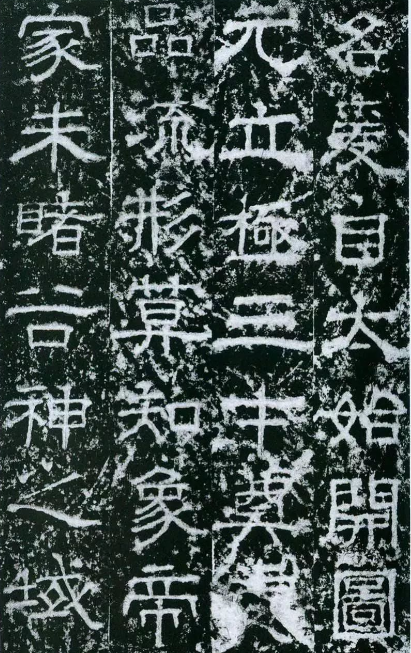 名爰自太始開圖
元立極三才奠
品流形莫知象帝
家未睹谷神之域